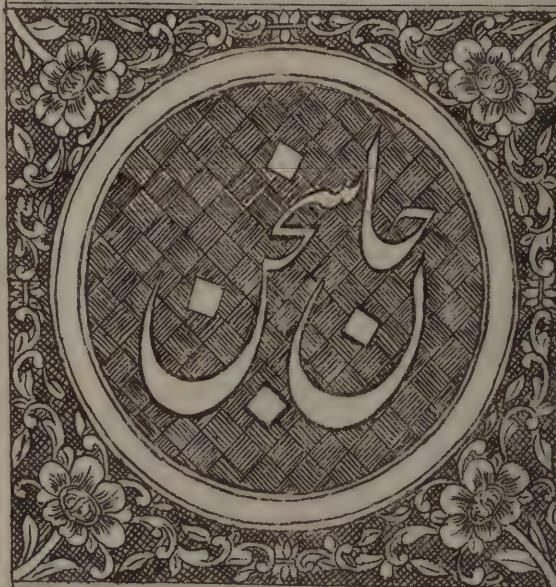 جان سخن